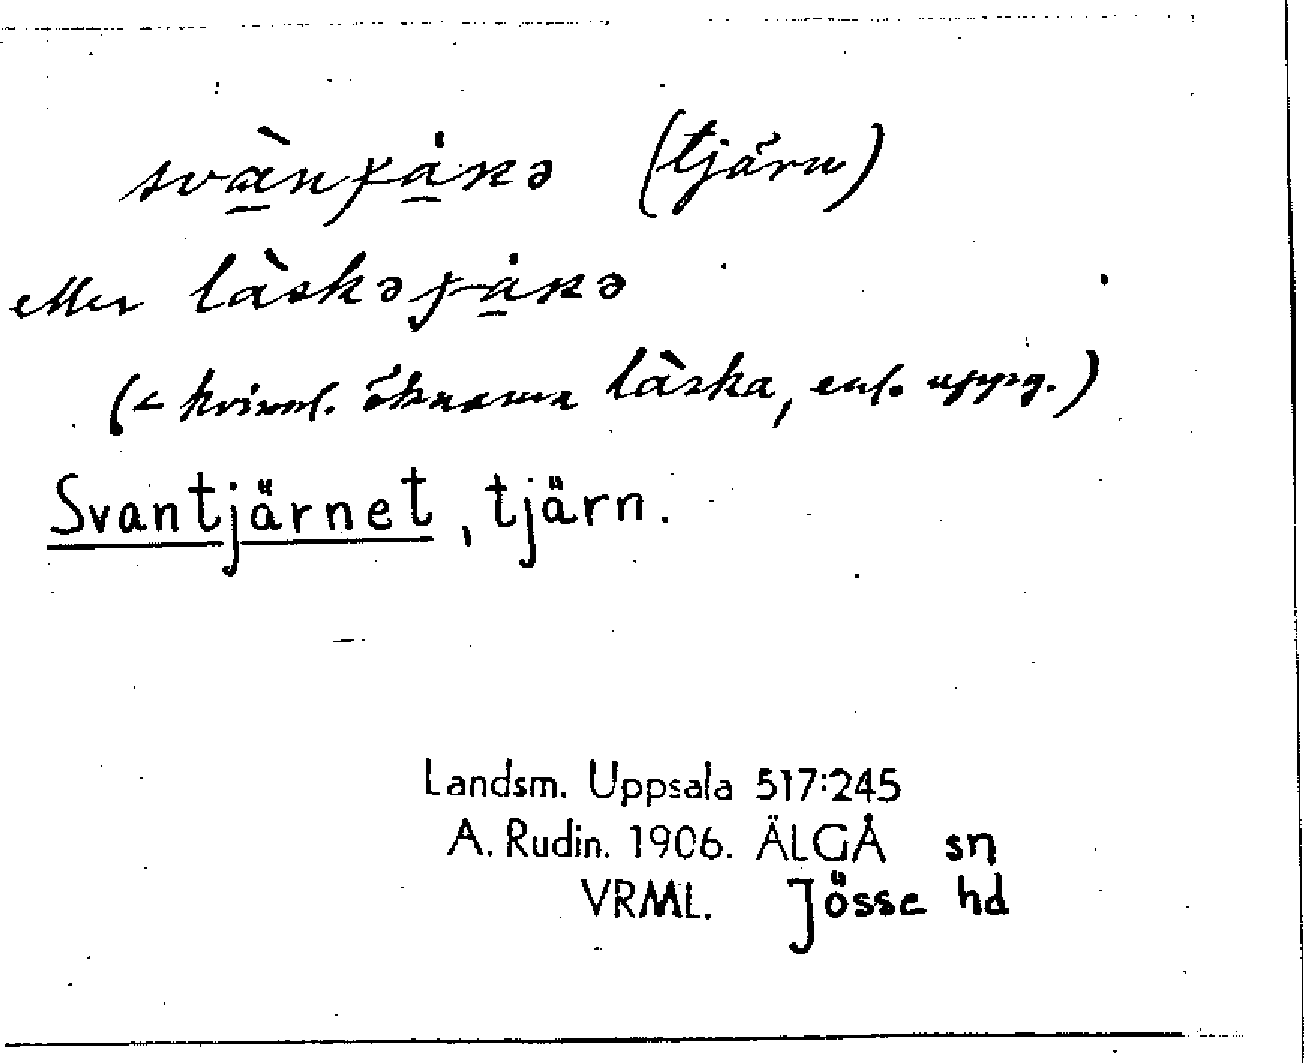 (tjärn)
eller
(< kvinnl. öknamn làska, enl. uppg.)
Svantjärnet, tjärn.
Landsm. Uppsala 517:245
A. Rudin. 1906. ÄLGÅ sn
VRML. Jösse hd